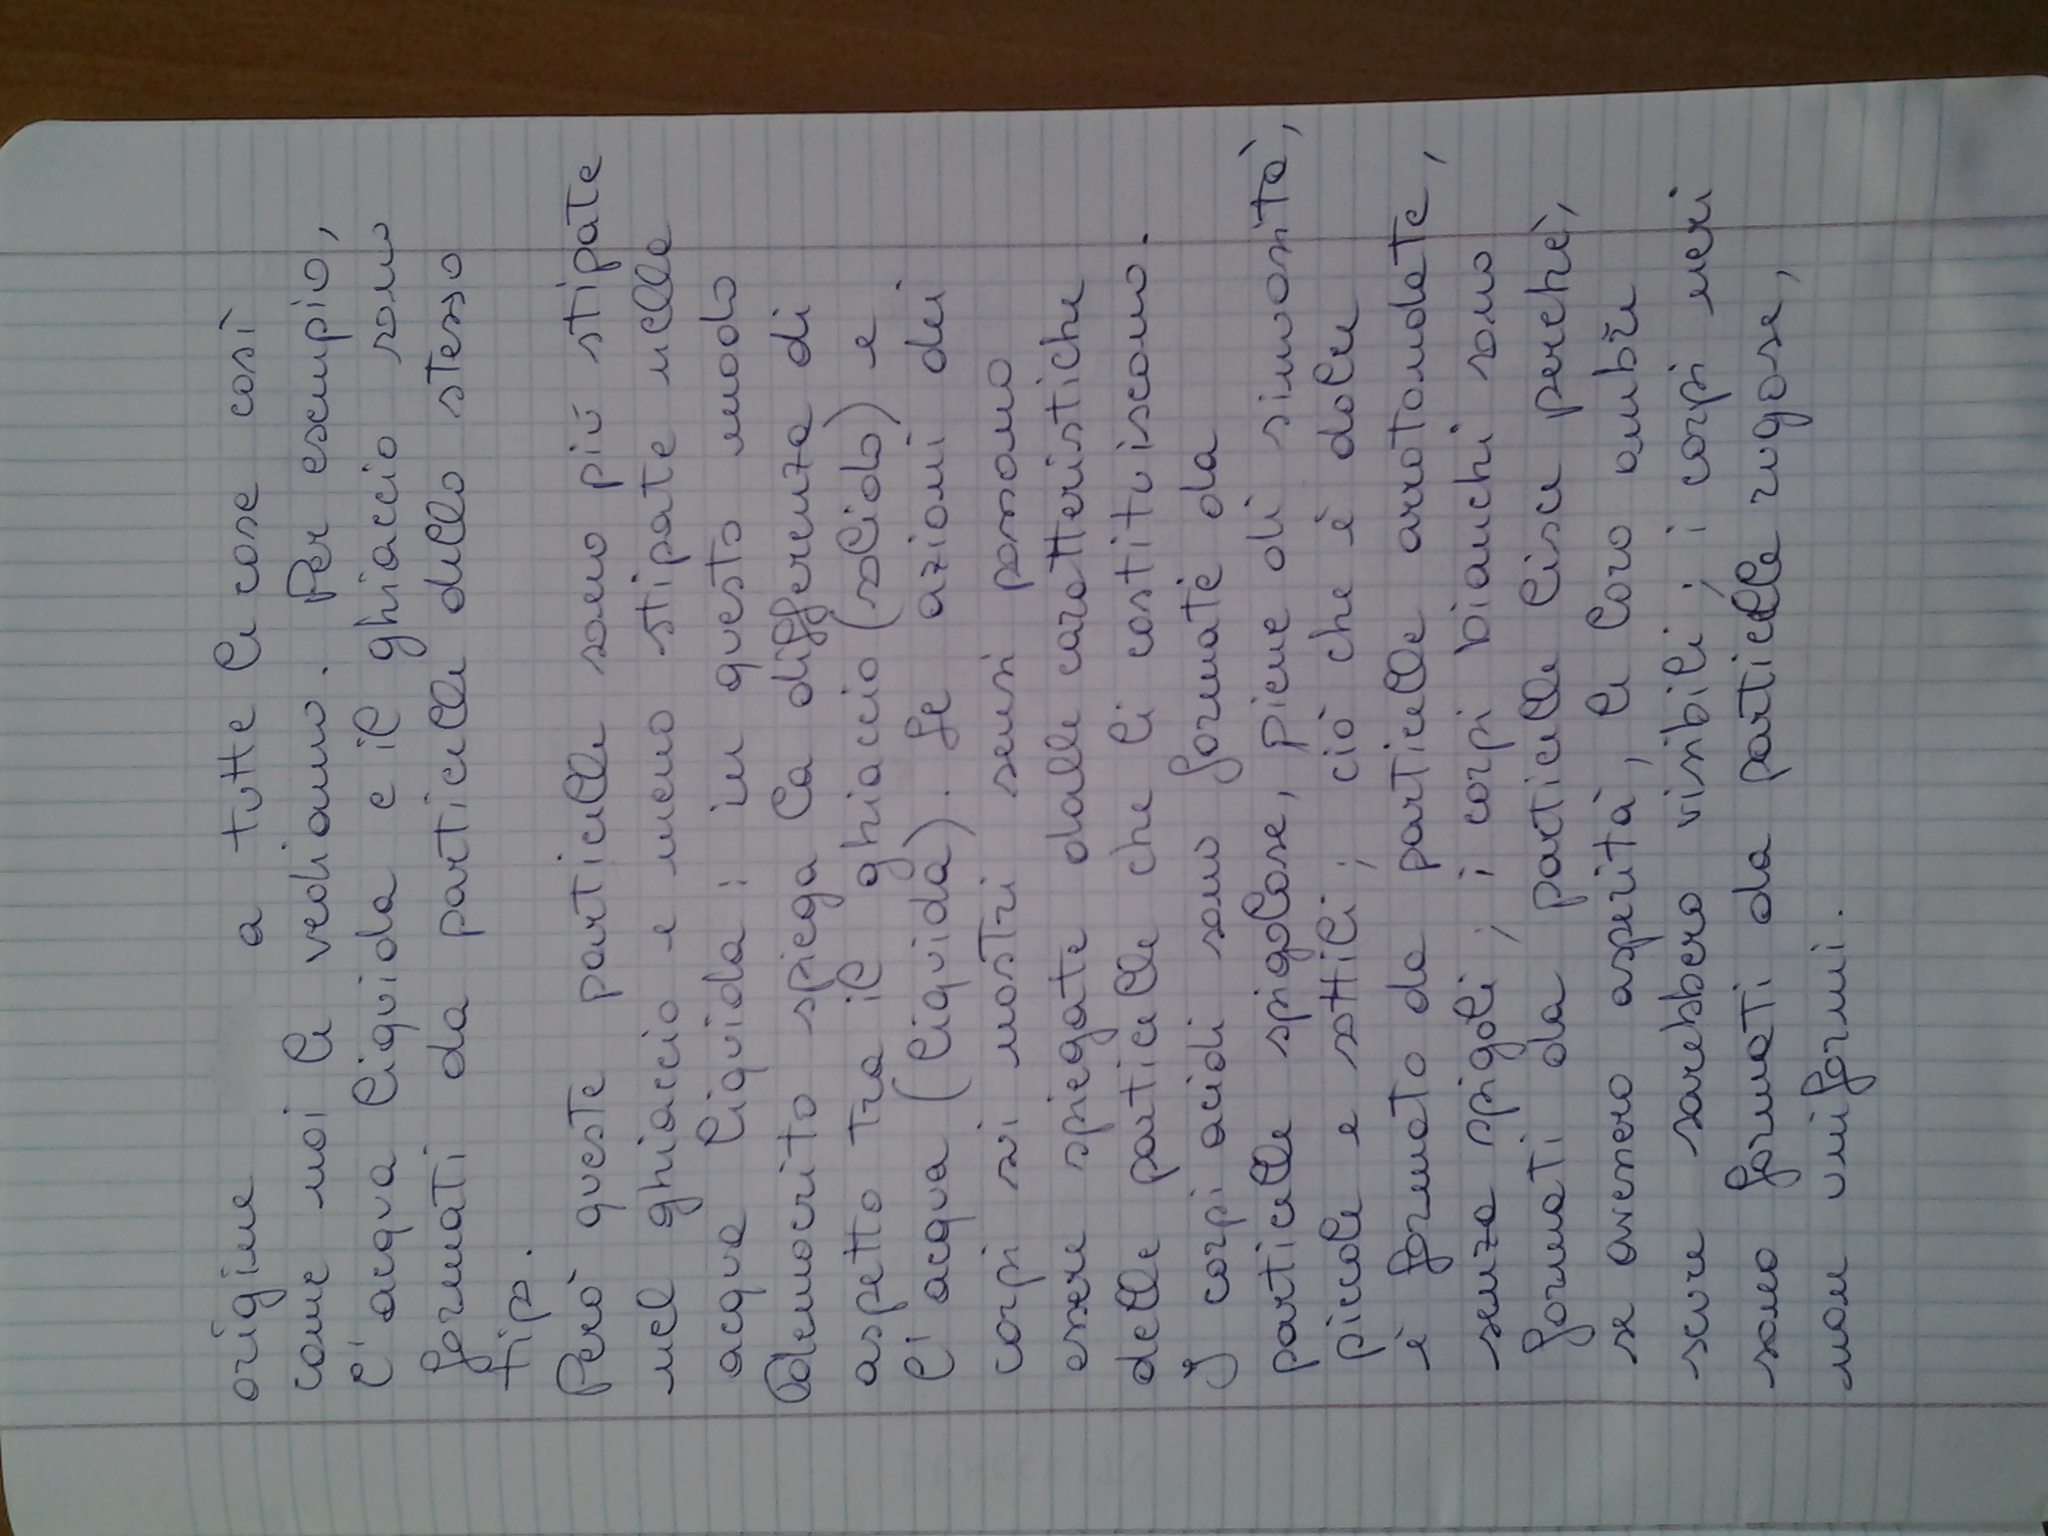 origine a tutte le cose così
come noi le vediamo. Per esempio,
l'acqua liquida e il ghiaccio sono
formati da particelle dello stesso
tipo.
Però queste particelle sono più stipate
nel ghiaccio e meno stipate nella
acqua liquida: in questo modo
Democrito spiega la differenza di
aspetto tra il ghiaccio (solido) e
l'acqua (liquida). Le azioni dei
corpi sui nostri sensi possono
essere spiegate dalle caratteristiche
delle particelle che li costituiscono.
I corpi acidi sono formate da
particelle spigolose, piene di sinuosità,
piccole e sottili; ciò che è dolce
è formato da particelle arrotondate,
senza spigoli; i corpi bianchi sono
formati da particelle lisce perchè,
se avessero asperità, le loro ombre
scure sarebbero visibili; i corpi neri
sono formati da particelle rugose,
non uniformi.